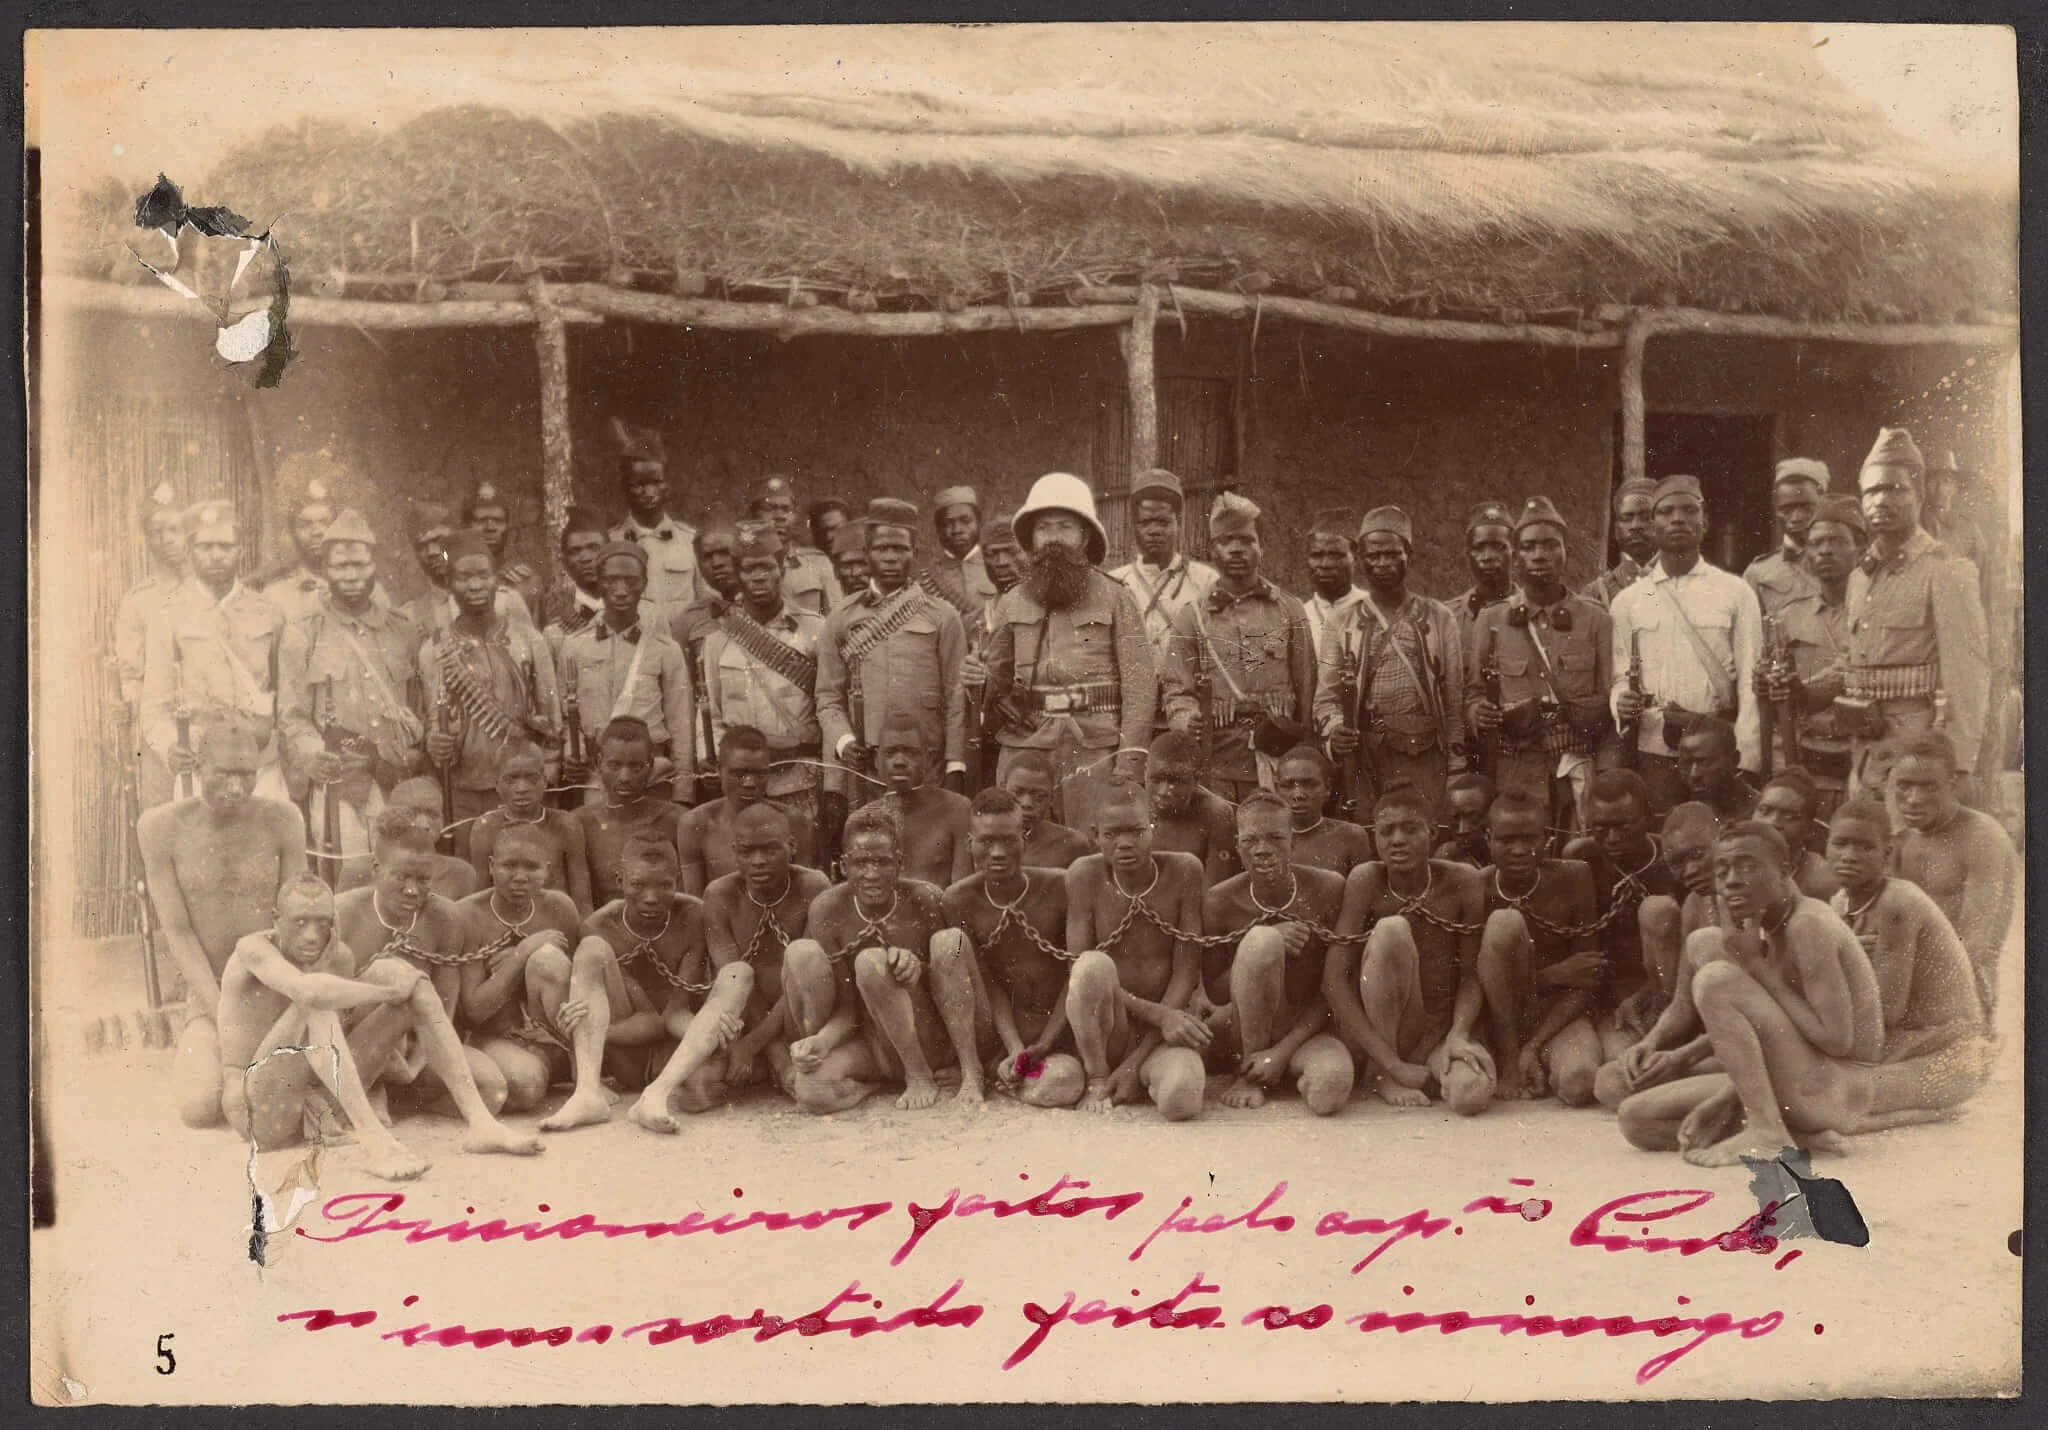 Prisioneiros feitos pelo cap.ão Pinto,
n'uma sortida feita ao inimigo.
5